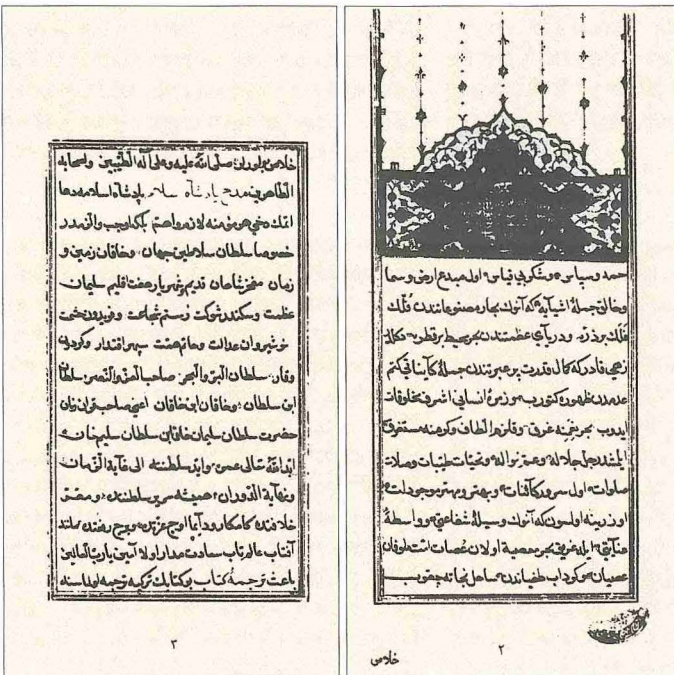 حمد وسپاس وشكر بی قیاس اول مبدع ارض وسما
وخالق جملهٔ اشیایه كه آنوك بحار مصنوعاتندن فلك
فلك بر ذره ودریای عظمتندن بحر محیط بر قطره دكلدر
زهی قادر كه كمال قدرت پر عبرتندن جملهٔ كایناتی كتم
عدمدن ظهوره كتورب بو زمرهٔ انسانی اشرف مخلوقات
ایدوب بحر نعمته غرق وقلزم الطاف وكرمنه مستغرق
ایلمشدر جل جلاله وعم نواله وتحیات طیبات وصلات
صلوات اول سرور كائنات وبهتر ومهتر موجودات
اوزرینه اولسون كه آنوك وسیلهٔ شفاعتی وواسطهٔ
عنایتی ایله غریق بحر معصیة اولان عصات امت طوفان
عصیان وكرداب طغیاندن ساحل نجاته چقوب
خلاص
٢
خلاص بولورلر صلی الله علیه وعلی آله الطیبین واصحابه
الطاهرین مدح پادشاه اسلام پادشاه اسلامه دعا
اتمك دخی هر مؤمنه لازم واهم بلكه اوجب والزمدر
خصوصا سلطان سلاطین جهان وخاقان زمین و
زمان مفخر شاهان قدیم شهریار هفت اقلیم سلیمان
عظمت وسكندر شوكت رستم شجاعت وفریدون حشمت
نوشیروان عدالت وحاتم همت سپهر اقتدار وكردون
وقار سلطان البر والبحر صاحب العز والنصر سلطان
ابن سلطان وخاقان ابن خاقان اعنی صاحبقران زمان
حضرت سلطان سلیمان خان ابن سلطان سلیم خان
ابد الله تعالی عمره وابد سلطنته الی غایة الزمان
ونهایة الدوران همیشه سریر سلطنتده ومصر
خلافتده كامكار ودائما اوج عزتده وبرج رفعتده مانند
آفتاب عالمتاب سعادت مدار اولا آمین یا رب العالمین
باعث ترجمهٔ كتاب بو كتابك تركیه ترجمه اولماسنه
٣